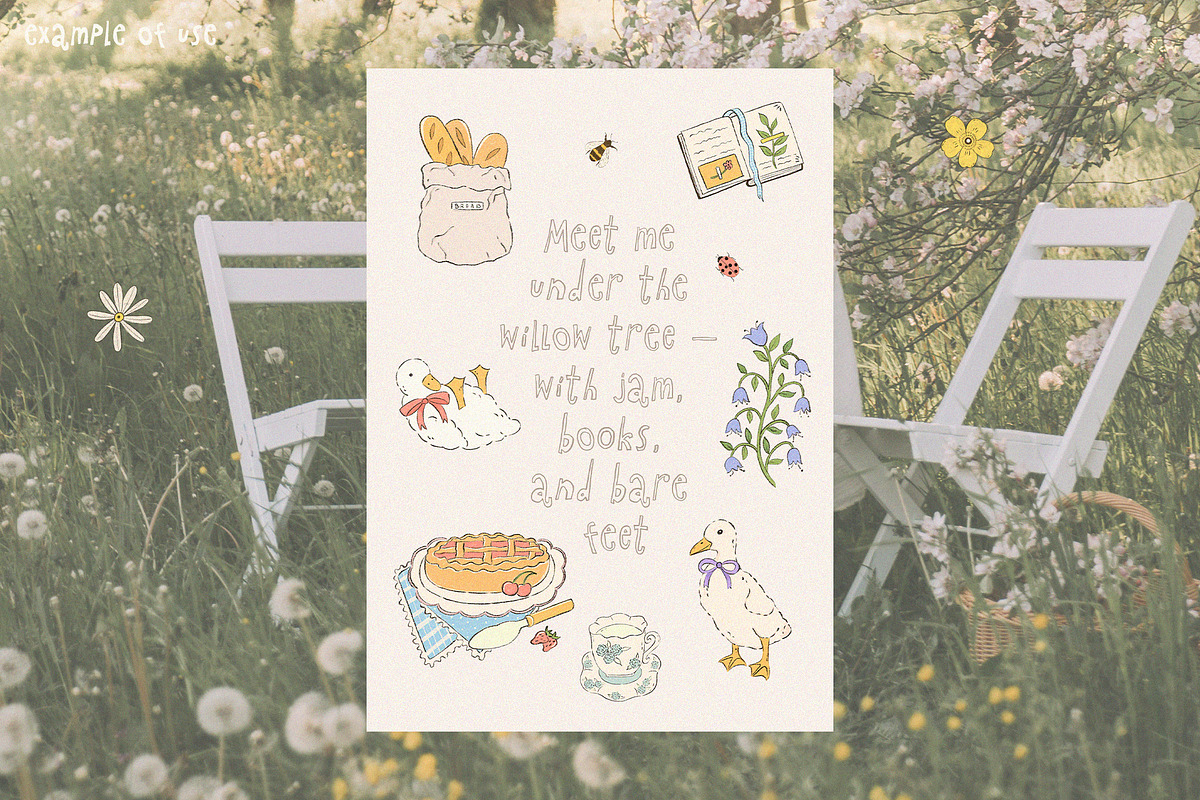 example of use
BREAD
Meet me
under the
willow tree —
with jam,
books,
and bare
feet